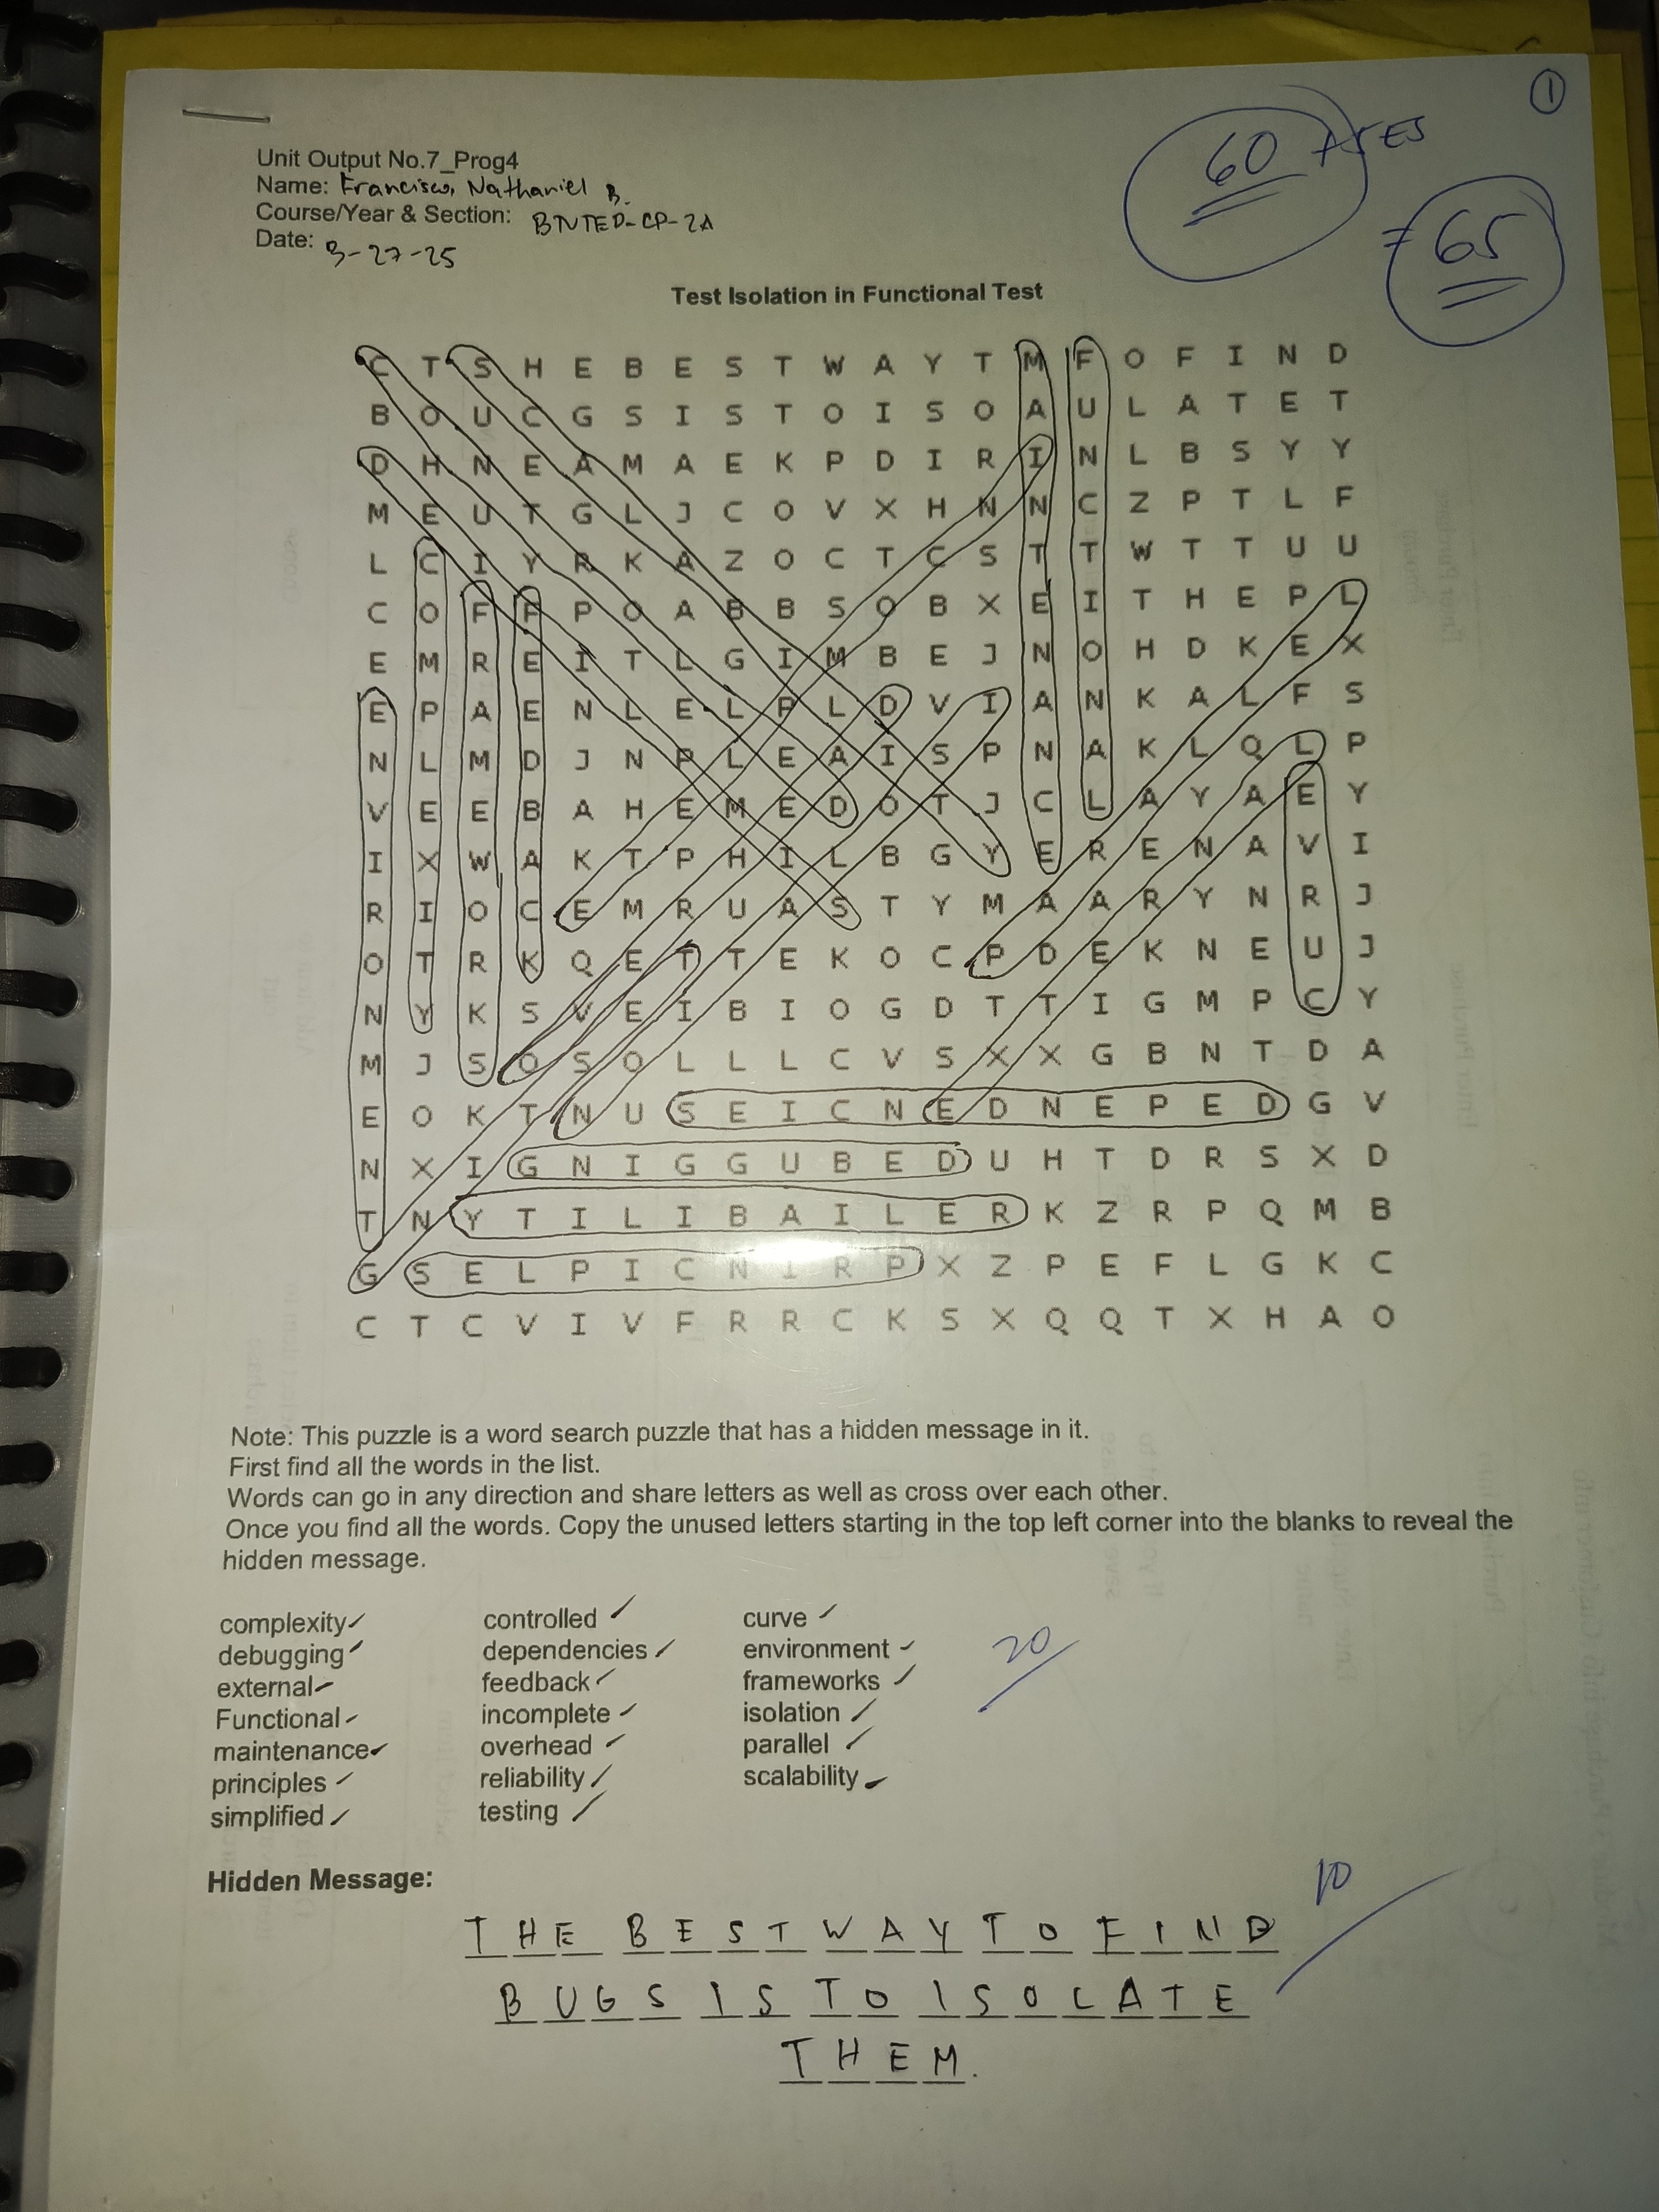 1
60 +5 ES
= 65
Unit Output No.7_Prog4
Name: Francisco, Nathaniel B.
Course/Year & Section: BTVTED-CP-2A
Date: 3-27-25
Test Isolation in Functional Test
C T S H E B E S T W A Y T M F O F I N D
B O U C G S I S T O I S O A U L A T E T
D H N E A M A E K P D I R I N L B S Y Y
M E U T G L J C O V X H N N C Z P T L F
L C I Y R K A Z O C T C S T T W T T U U
C O F F P O A B B S O B X E I T H E P L
E M R E I T L G I M B E J N O H D K E X
E P A E N L E L P L D V I A N K A L F S
N L M D J N P L E A I S P N A K L Q L P
V E E B A H E M E D O T J C L A Y A E Y
I X W A K T P H I L B G Y E R E N A V I
R I O C E M R U A S T Y M A A R Y N R J
O T R K Q E T T E K O C P D E K N E U J
N Y K S V E I B I O G D T T I G M P C Y
M J S O S O L L L C V S X X G B N T D A
E O K T N U S E I C N E D N E P E D G V
N X I G N I G G U B E D U H T D R S X D
T N Y T I L I B A I L E R K Z R P Q M B
G S E L P I C N I R P X Z P E F L G K C
C T C V I V F R R C K S X Q Q T X H A O
Note: This puzzle is a word search puzzle that has a hidden message in it.
First find all the words in the list.
Words can go in any direction and share letters as well as cross over each other.
Once you find all the words. Copy the unused letters starting in the top left corner into the blanks to reveal the
hidden message.
complexity controlled curve
debugging dependencies environment
external feedback frameworks
Functional incomplete isolation
maintenance overhead parallel
principles reliability scalability
simplified testing
20
Hidden Message:
10
THE BEST WAY TO FIND
BUGS IS TO ISOLATE
THEM.